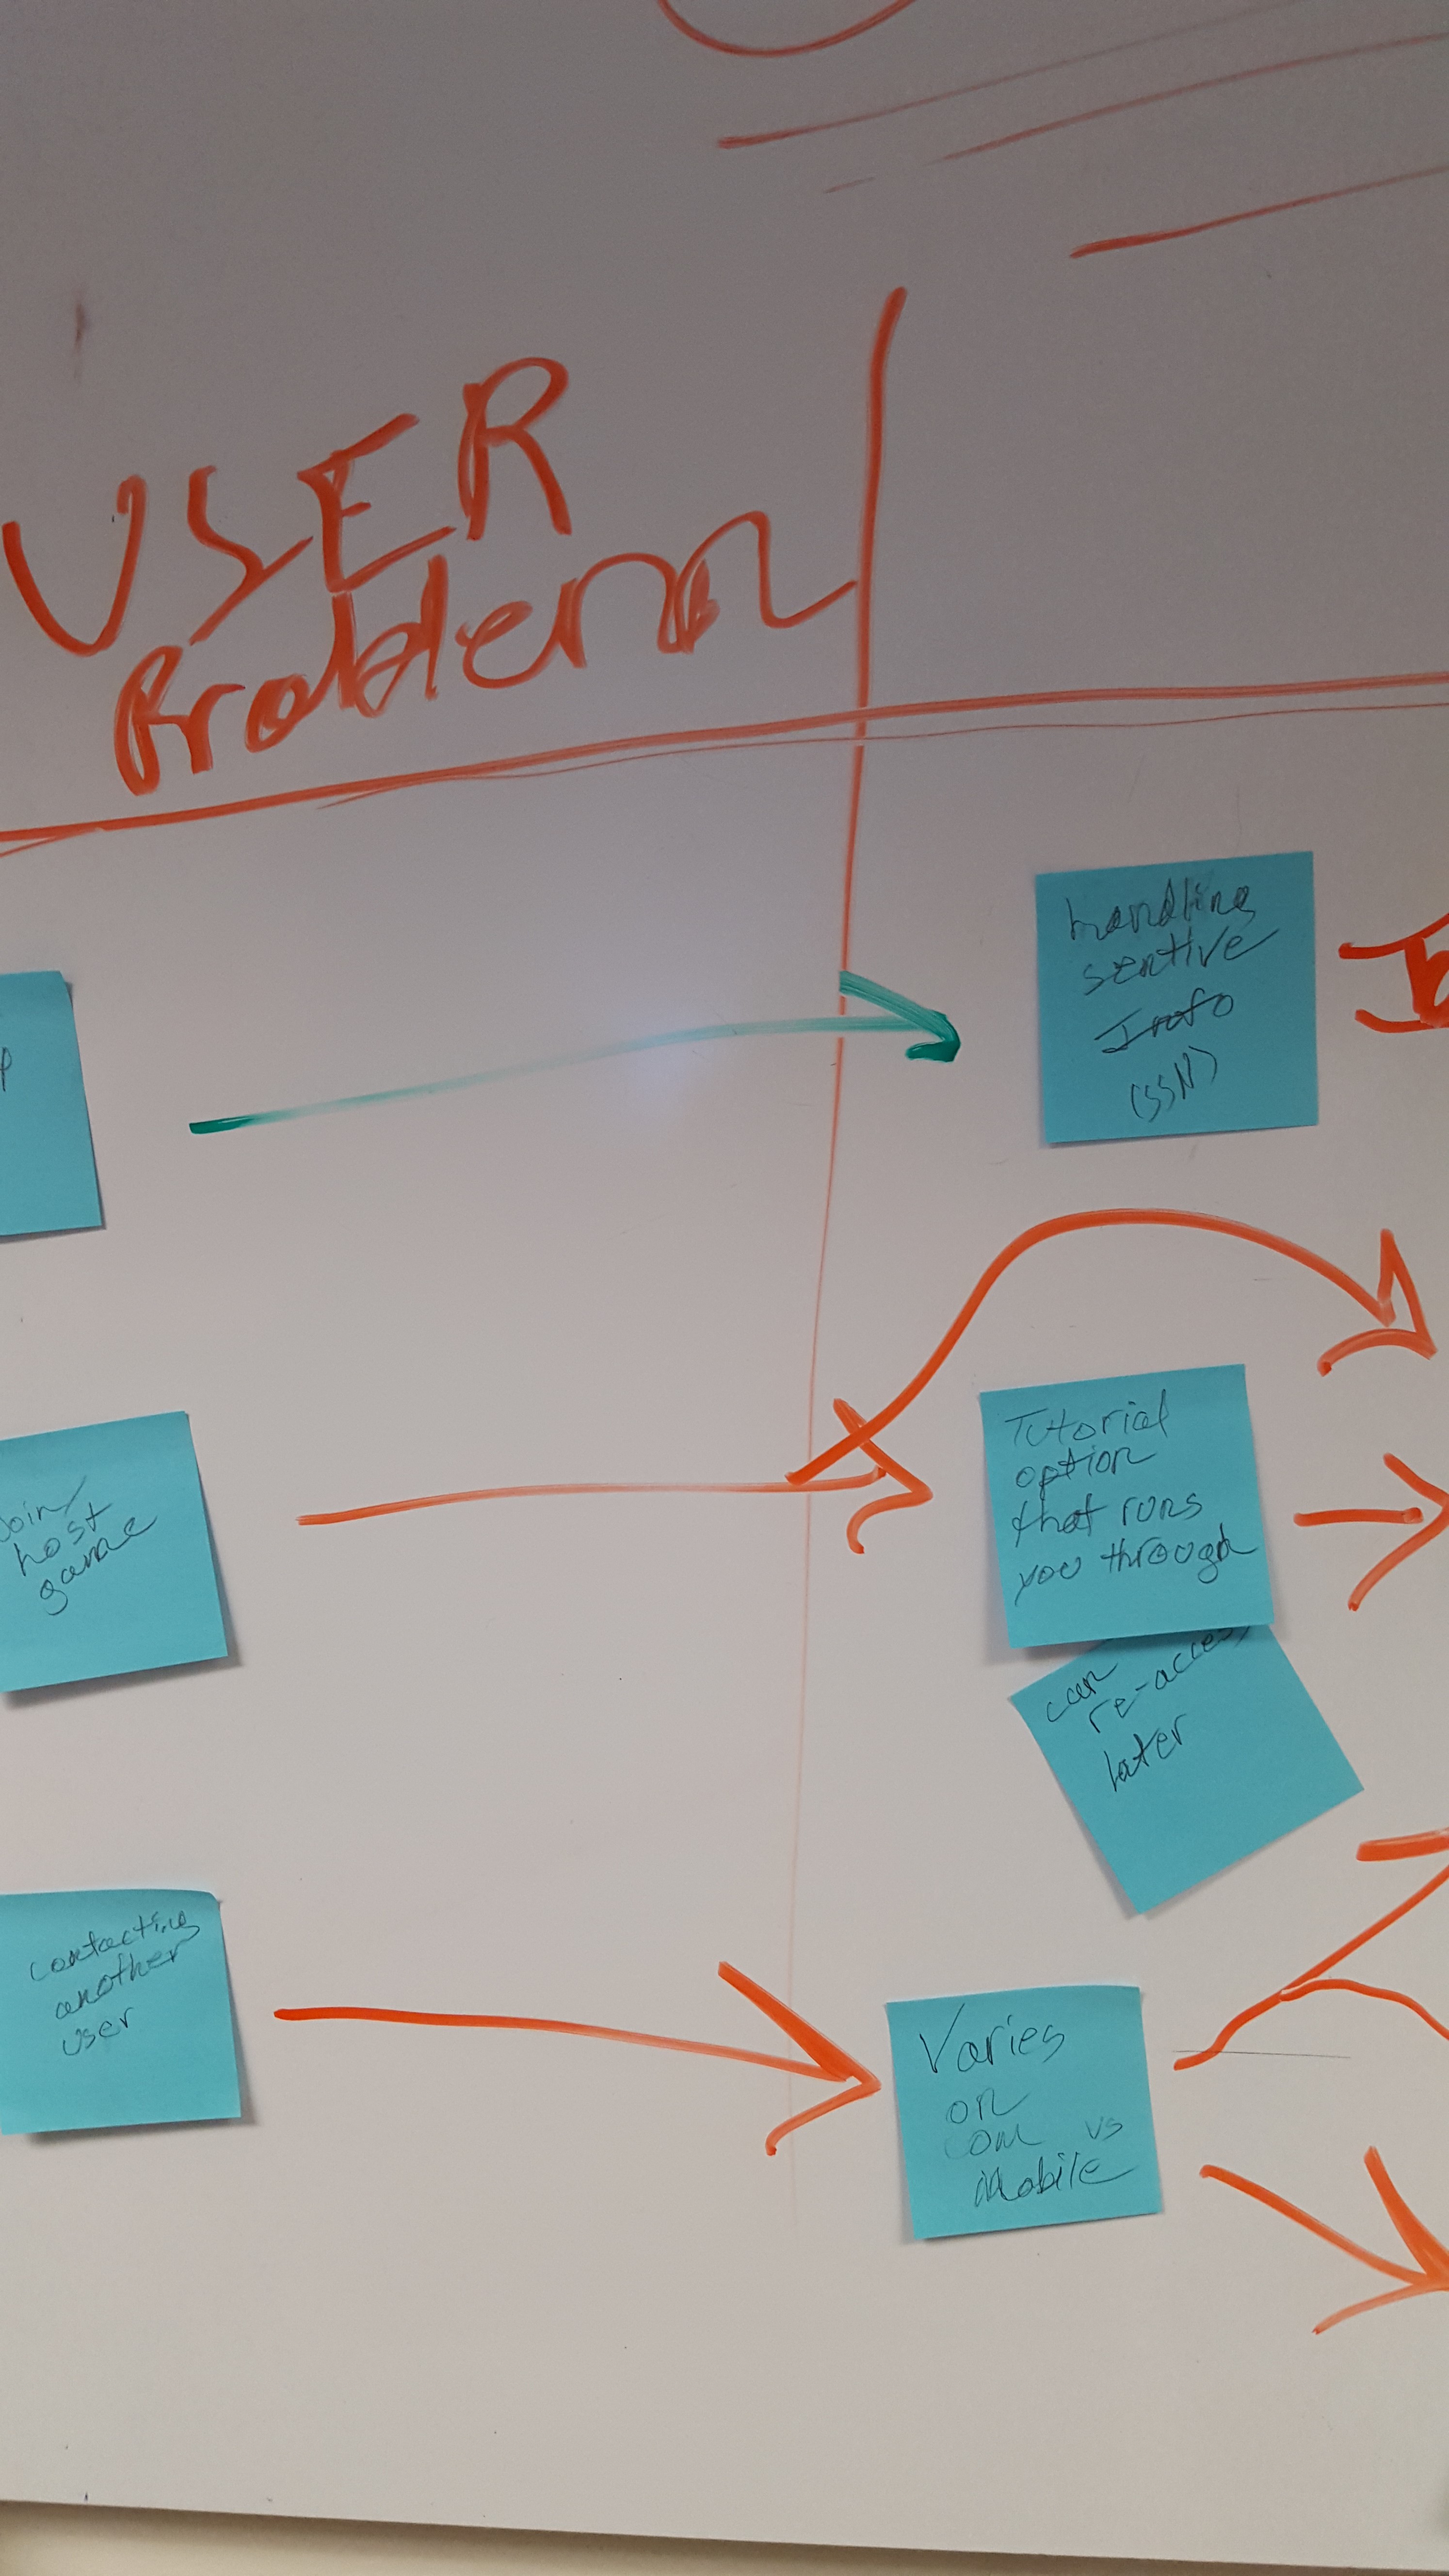 USER
Problem
handling
sentive
Info
(SSN)
Join/
host
game
Tutorial
option
that runs
you through
can
re-access
later
contacting
another
user
Varies
on
com vs
mobile